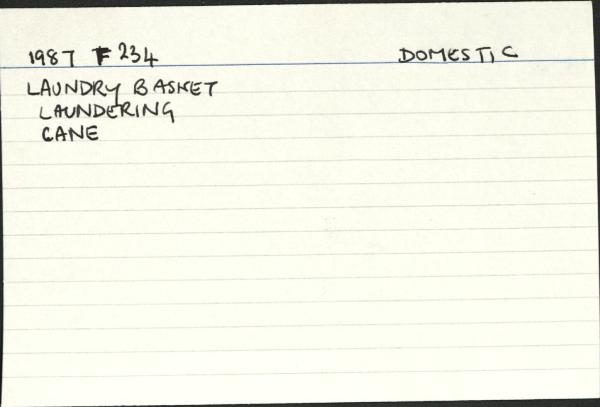 1987 F 234 DOMESTIC
LAUNDRY BASKET
LAUNDERING
CANE